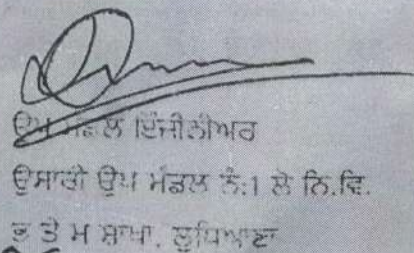 ਉਪ ਮੰਡਲ ਇੰਜੀਨੀਅਰ
ਉਸਾਰੀ ਉਪ ਮੰਡਲ ਨੰ:1 ਲੋ ਨਿ.ਵਿ.
ਭ ਤੇ ਮ ਸ਼ਾਖਾ, ਲੁਧਿਆਣਾ